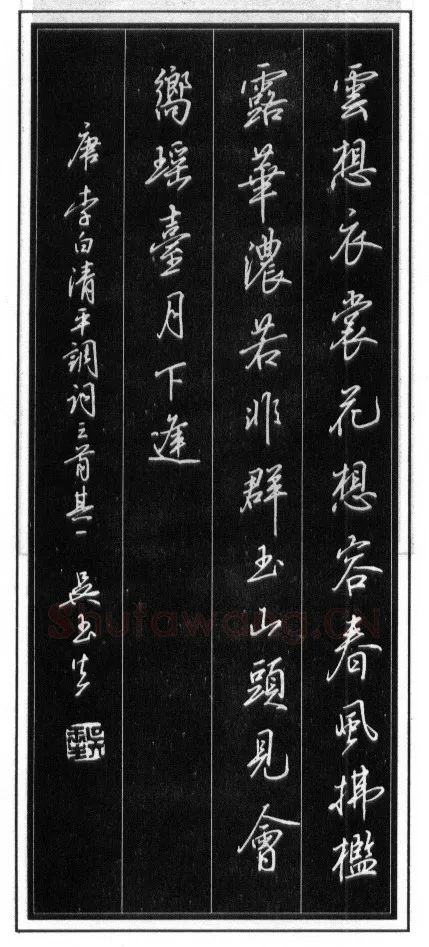 雲想衣裳花想容春風拂檻
露華濃若非群玉山頭見會
嚮瑶臺月下逢
唐 李白清平調詞三首其一 吳玉生
Shufawang.CN